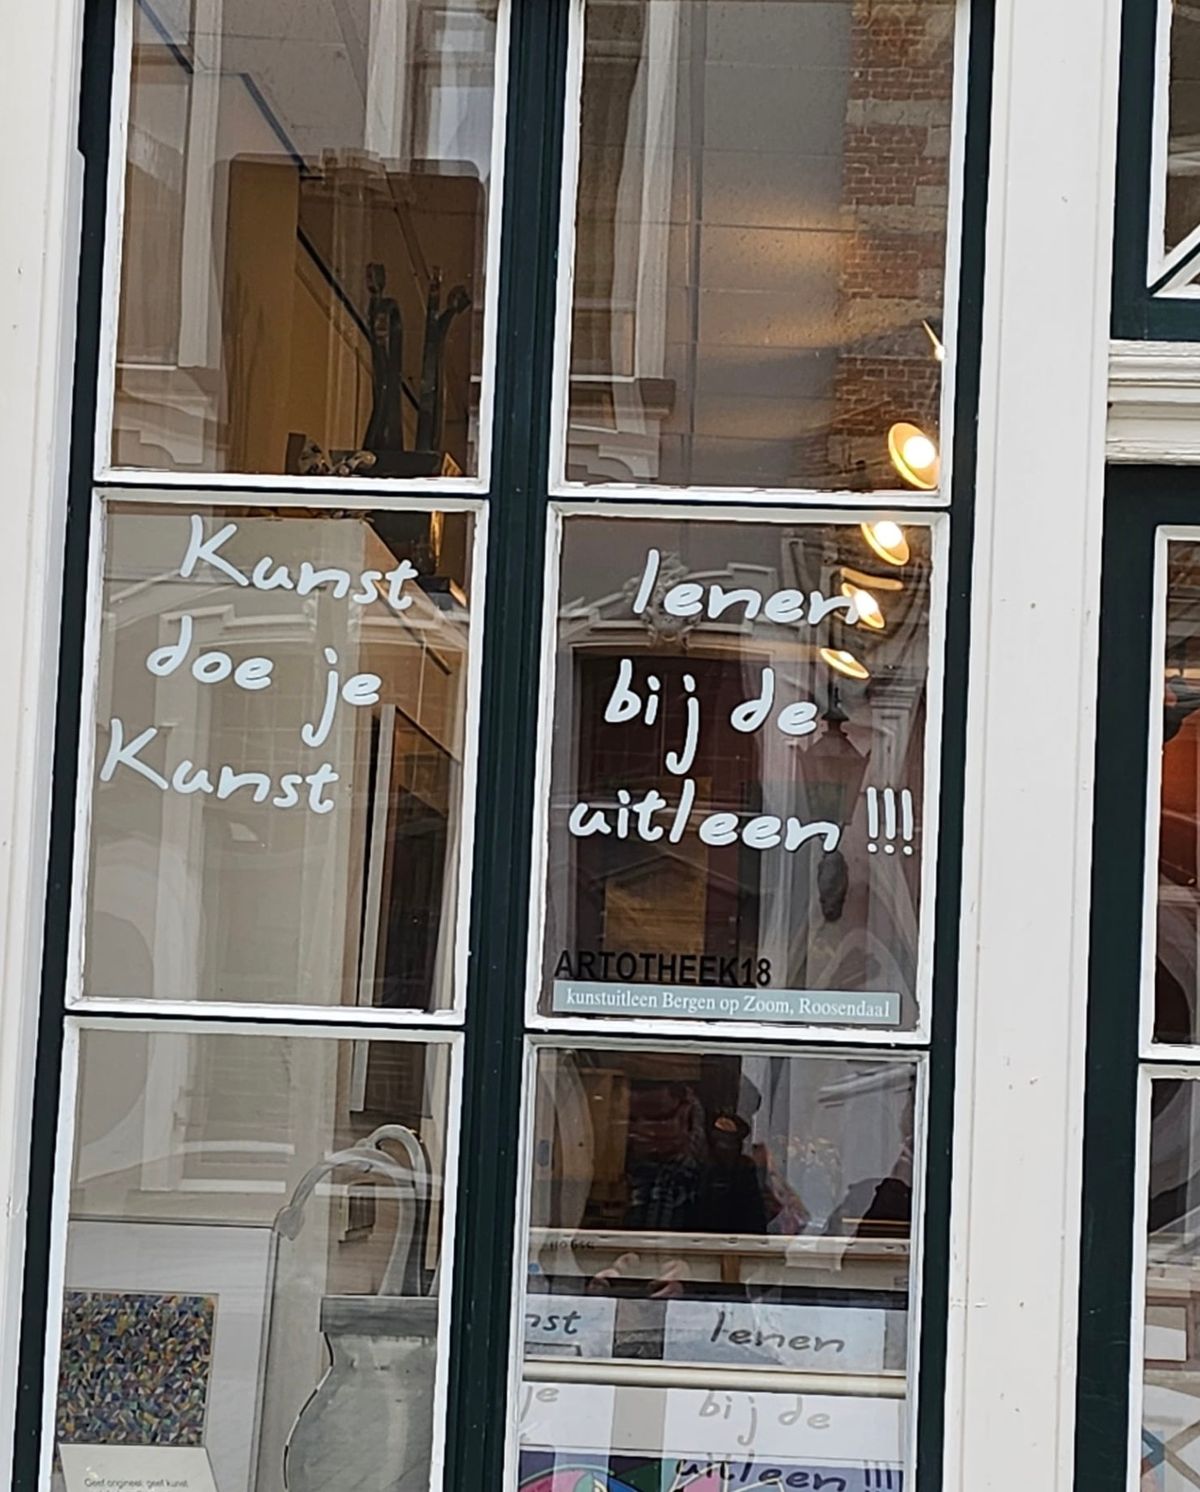 Kunst
doe je
Kunst
lenen
bij de
uitleen !!!
ARTOTHEEK18
kunstuitleen Bergen op Zoom, Roosendaal
nst
lenen
je
bij de
uitleen !!!
Geef origineel, geef kunst.